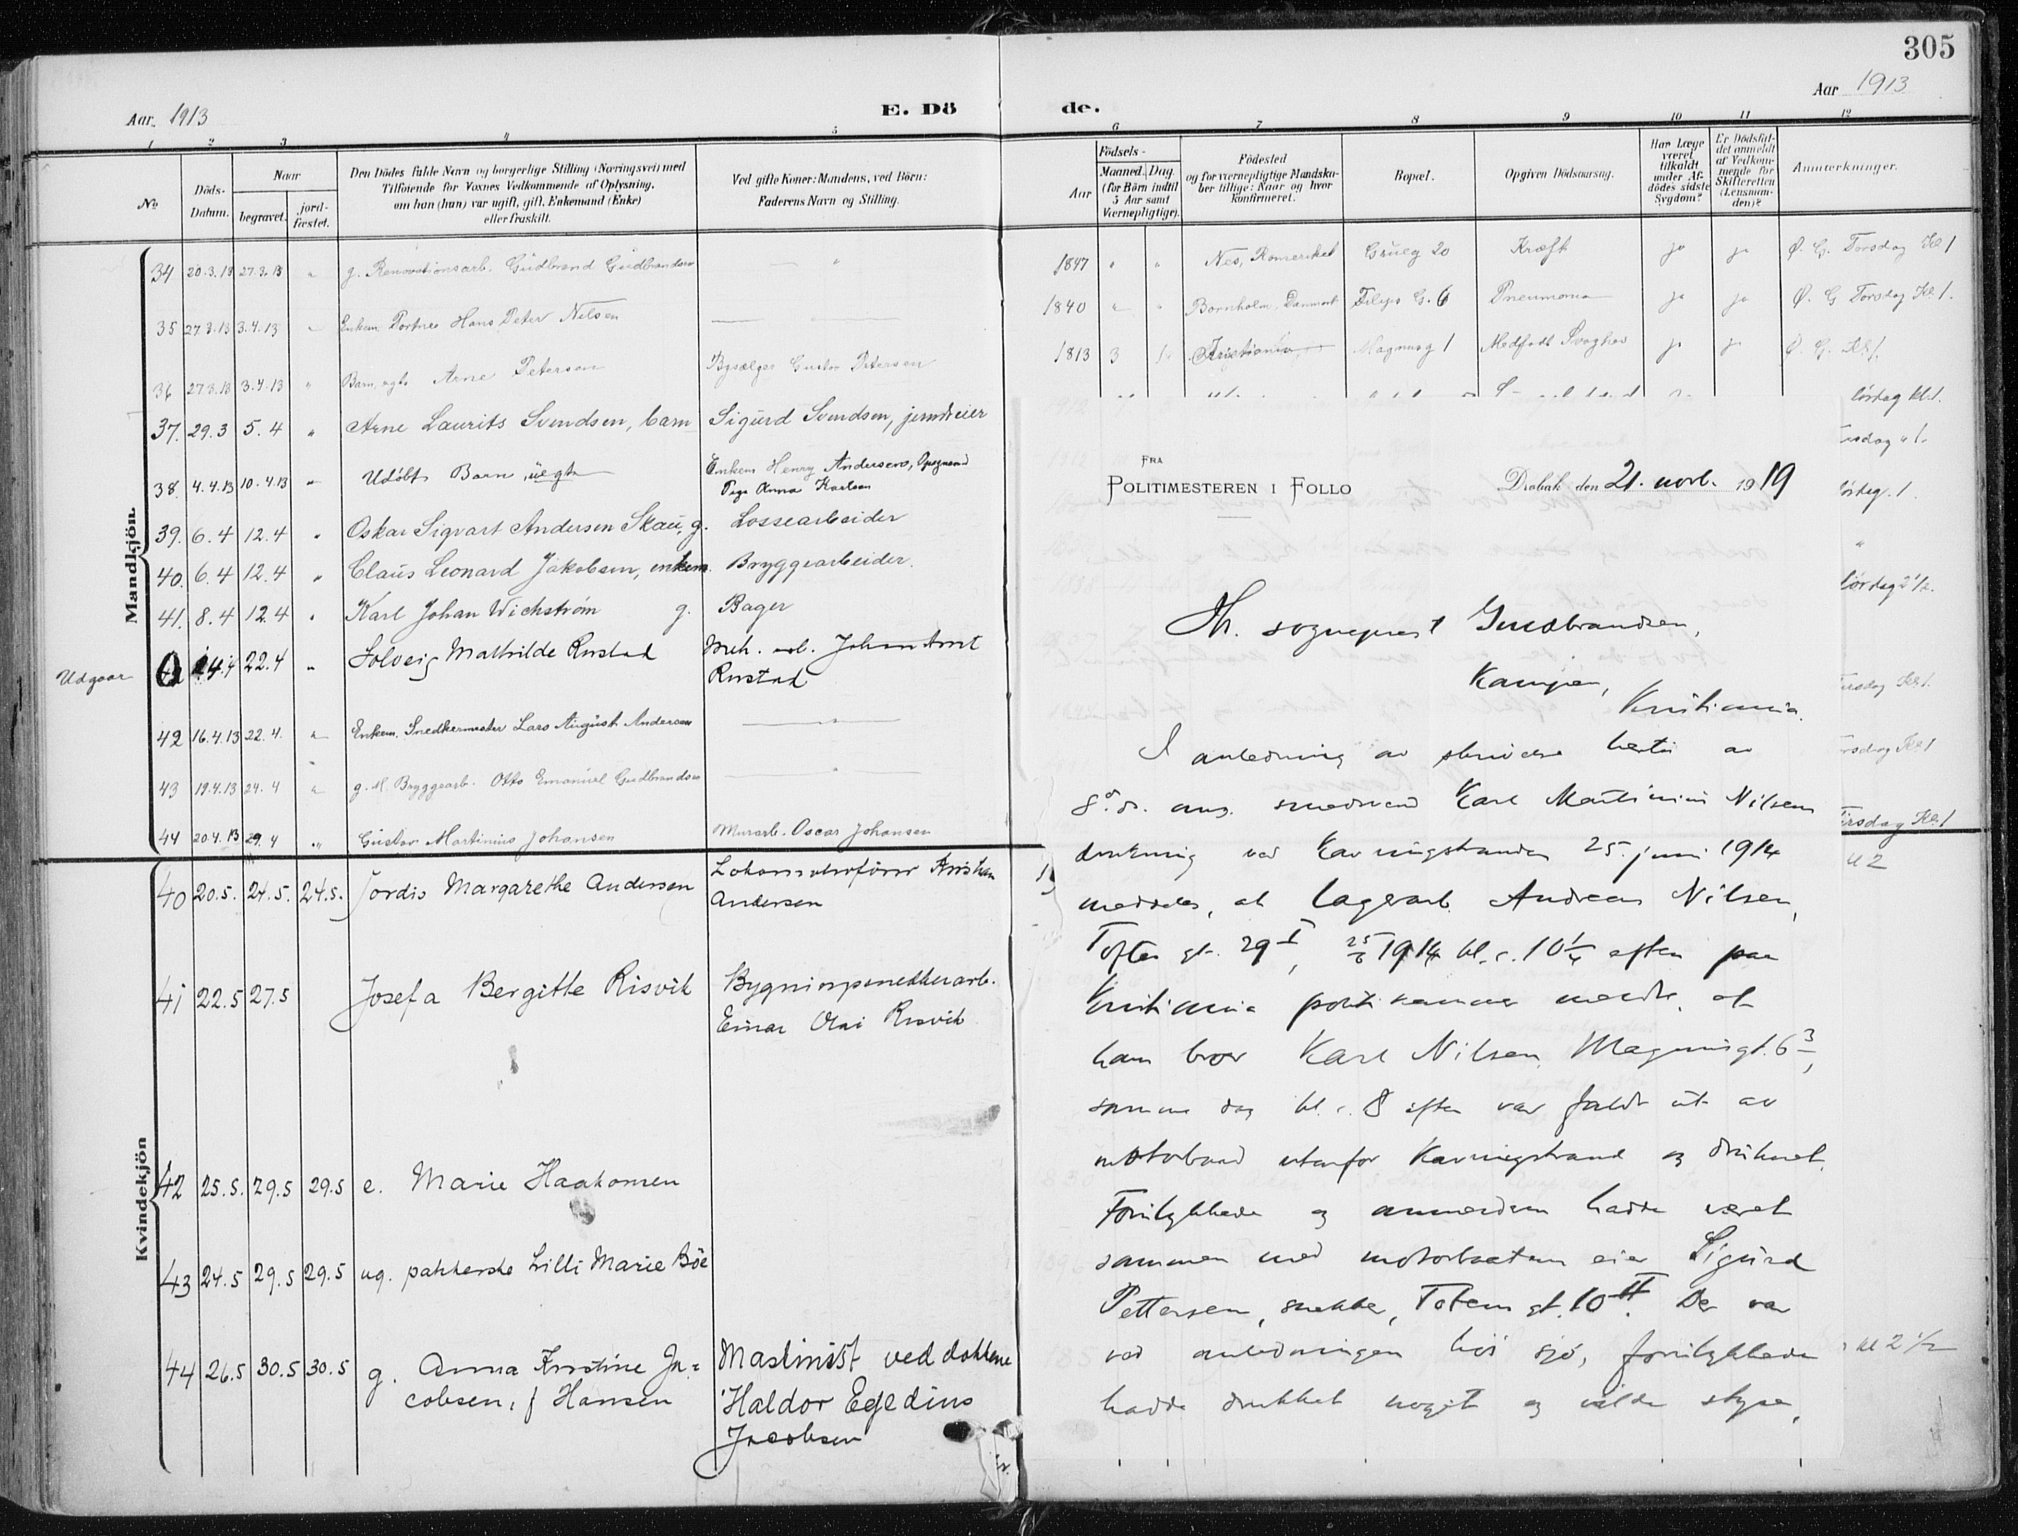 305
Aar 1913
E. Dö
de.
Aar 1913
1 2 3 4 5 6 7 8 9 10 11 12
No
Döds-
Datum.
Naar
begravet.
jord-
fæstet.
Den Dödes fulde Navn og borgerlige Stilling (Næringsvei) med
Tilföiende for Voxnes Vedkommende af Oplysning,
om han (hun) var ugift, gift, Enkemand (Enke)
eller fraskilt.
Ved gifte Koner: Mandens, ved Börn:
Faderens Navn og Stilling.
Födsels-
Aar
Maaned. Dag.
(for Börn indtil
5 Aar samt
Værnepligtige).
Födested
og for værnepligtige Mandska-
ber tillige: Naar og hvor
konfirmeret.
Bopæl.
Opgiven Dödsaarsag.
Har Læge
været
tilkaldt
under Af-
dödes sidste
Sygdom?
Er Dödsfal-
det anmeldt
af Vedkom-
mende for
Skifteretten
(Lensman-
den)?
Anmærkninger.
Mandkjön.
34 20.3.13 27.3.13 " g. Renovationsarb. Gudbrand Gudbrandsen — " 1847 " " Nes, Romeriket Gruleg 20 Kræft ja ja Ø. G. Torsdag Kl 1
35 27.3.13 3.4.13 " Enkem. Hans Peter Nilsen 1840 " " Bornholm, Danmark Filips G. 6 Pneumonia ja ja Ø. G Torsdag Kl 1.
36 27.3.13 3.4.13 " Barn, egte Arne Petersen Bysælger Gustav Petersen 1813 3 Kristiania Magnusg 1 Medfødt Svaghed ja ja Ø. G. Kl 1.
37. 29.3 5.4 " Arne Laurits Svendsen, barn Sigurd Svendsen, lördag kl 1.
38. 4.4.13 10.4.13 " Udöbt Barn, uegte Enkem Henry Andersen,
Pige Anna Karlsen
39. 6.4 12.4 " Oskar Sigvart Andersen Skau, g. Lossearbeider
40. 6.4 12.4 " Claus Leonard Jakobsen, enkem. Bryggearbeider. lördag 2 1/2.
41. 8.4 12.4 " Karl Johan Wichstrøm g. Bager
Udgaar 14.4 22.4 " Solveig Mathilde Rustad Mek. arb. Johan Arnt
Rustad
42 16.4.13 22.4. " Enkem. Snedkermester Lars August Andersen — "
43 19.4.13 24.4 " g. M. Bryggearb. Otto Emanuel Gudbrandsen — "
44 20.4.13 29.4 " Gustav Martinius Johansen Murarb. Oscar Johansen Tirsdag Kl 1
Kvindekjön
40 20.5. 24.5. 24.5. Jordis Margarethe Andersen Lokomotivfører Kristian
Andersen
41 22.5 27.5 Josefa Bergitte Risvik Bygningssnedkerarb.
Einar Olai Risvik
42 25.5. 29.5 29.5 e. Marie Haakonsen
43 24.5 29.5 29.5 ug. pakkerske Lilli Marie Böe
44 26.5 30.5 30.5 g. Anna Kristine Ja-
cobsen, f Hansen Maskinist ved dokkene
Haldor Egedius
Jacobsen
kl 2
kl 2 1/2
FRA
POLITIMESTEREN I FOLLO
Drøbak den 21. novb. 1919
Hr. sogneprest Gudbrandsen,
Kampen,
Kristiania.
I anledning av skrivelse hertil av
8. ds. ang. smedsvend Karl Martinius Nilsens
drukning ved Kavringstranden 25. juni 1914
meddeles, at lagerarb. Andreas Nilsen,
Toftes gt. 29 I, 25/6 1914 kl. c. 10 1/4 eften paa
Kristiania politikammer meldte, at
hans bror Karl Nilsen, Magnusgt. 6 3,
samme dag kl. c. 8 eften var faldt ut av
motorbaad utenfor Kavringstrand og druknet.
Forulykkede og anmelderen hadde været
sammen med motorbaatens eier Sigurd
Pettersen, snekker, Totens gt. 10 II. Der var
ved anledningen høi sjø, forulykkede
hadde drukket noget og vilde styre,